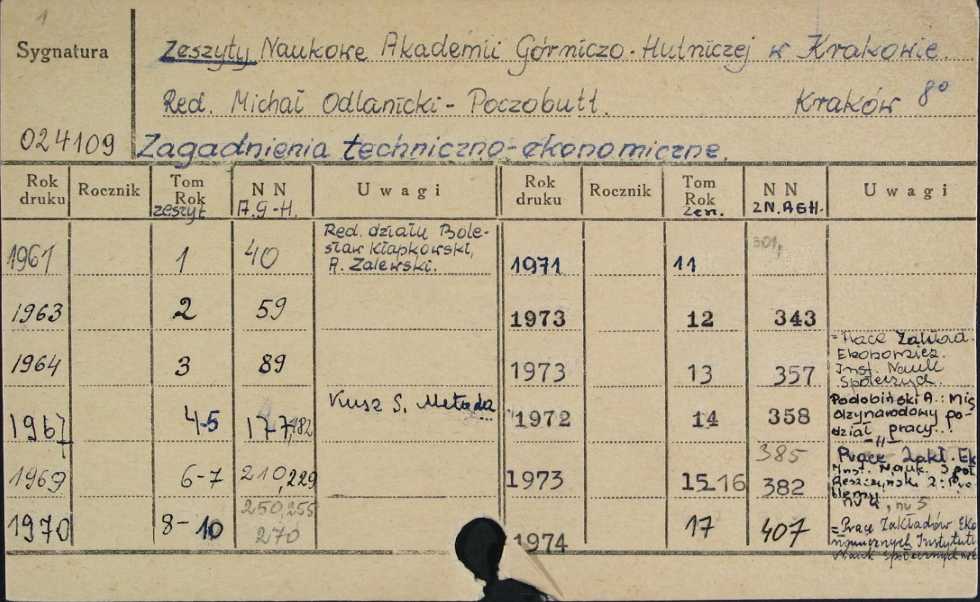 1
Sygnatura
Zeszyty Naukowe Akademii Górniczo-Hutniczej w Krakowie.
Red. Michał Odlanicki-Poczobutt. Kraków 8°
024109
Zagadnienia techniczno-ekonomiczne.
Rok druku Rocznik Tom Rok zeszyt NN A.G-H. Uwagi Rok druku Rocznik Tom Rok Zesz. NN ZN.AGH. Uwagi
1961 1 40 Red. działu Bole-
sław Kłapkowski,
A. Zalewski.
1971 11 301,
1963 2 59
1973 12 343
1964 3 89
1973 13 357 = Prace Zakład.
Ekonomicz.
Inst. Nauk
Społecznych.
1967 4-5 177,182 Kusz S. Metoda
1972 14 358 Podobiński A.: Mię
dzynarodowy po-
dział pracy..
1969 6-7 210,229
1973 15-16 385
382 Prace Zakł. Ek
Inst. Nauk. Społ
nr 4, nr 5
1970 8-10 250,255
270
1974 17 407 = Prace Zakładów Eko
nomicznych Instytutu
Nauk Społecznych nr